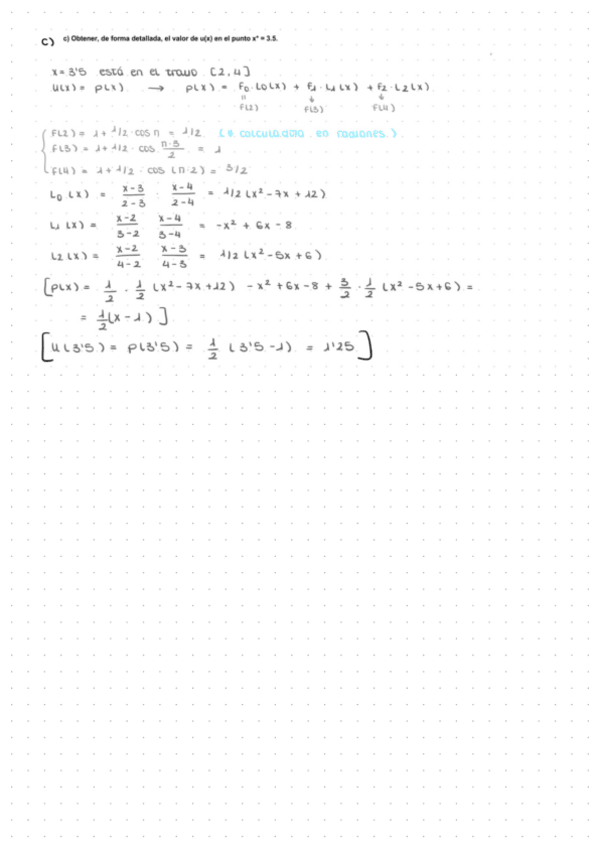 c) c) Obtener, de forma detallada, el valor de u(x) en el punto x* = 3.5.
x = 3'5 está en el tramo [2,4]
u(x) = p(x) → p(x) = f0·L0(x) + f1·L1(x) + f2·L2(x)
= ↓ ↓
F(2) F(3) F(4)
F(2) = 1 + 1/2·cos π = 1/2 (* calculadora en radianes.)
F(3) = 1 + 1/2·cos π·3/2 = 1
F(4) = 1 + 1/2·cos(π·2) = 3/2
L0(x) = x-3/2-3 x-4/2-4 = 1/2(x²-7x+12)
L1(x) = x-2/3-2 x-4/3-4 = -x²+6x-8
L2(x) = x-2/4-2 x-3/4-3 = 1/2(x²-5x+6)
[p(x) = 1/2 · 1/2 (x²-7x+12) -x²+6x-8 + 3/2 · 1/2 (x²-5x+6) =
= 1/2(x-1)]
[u(3'5) = p(3'5) = 1/2 (3'5-1) = 1'25]